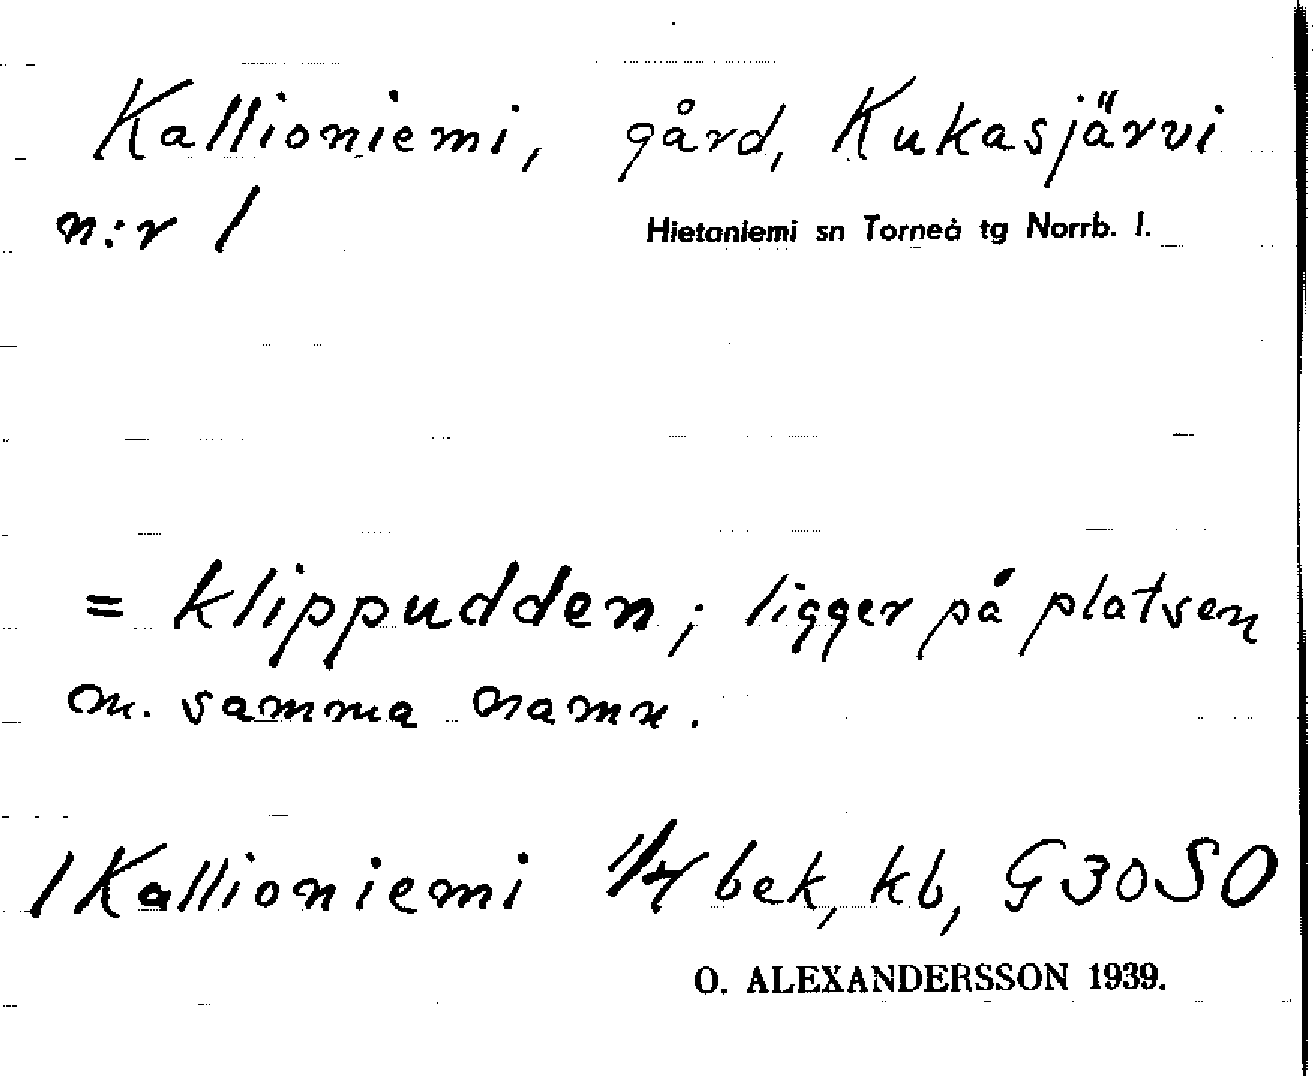 Kallioniemi, gård, Kukasjärvi
n:r 1
Hietaniemi sn Torneå tg Norrb. l.
= klippudden; ligger på platsen
m. samma namn.
1 Kallioniemi 1/4 bek, kb, G30SO
O. ALEXANDERSSON 1939.